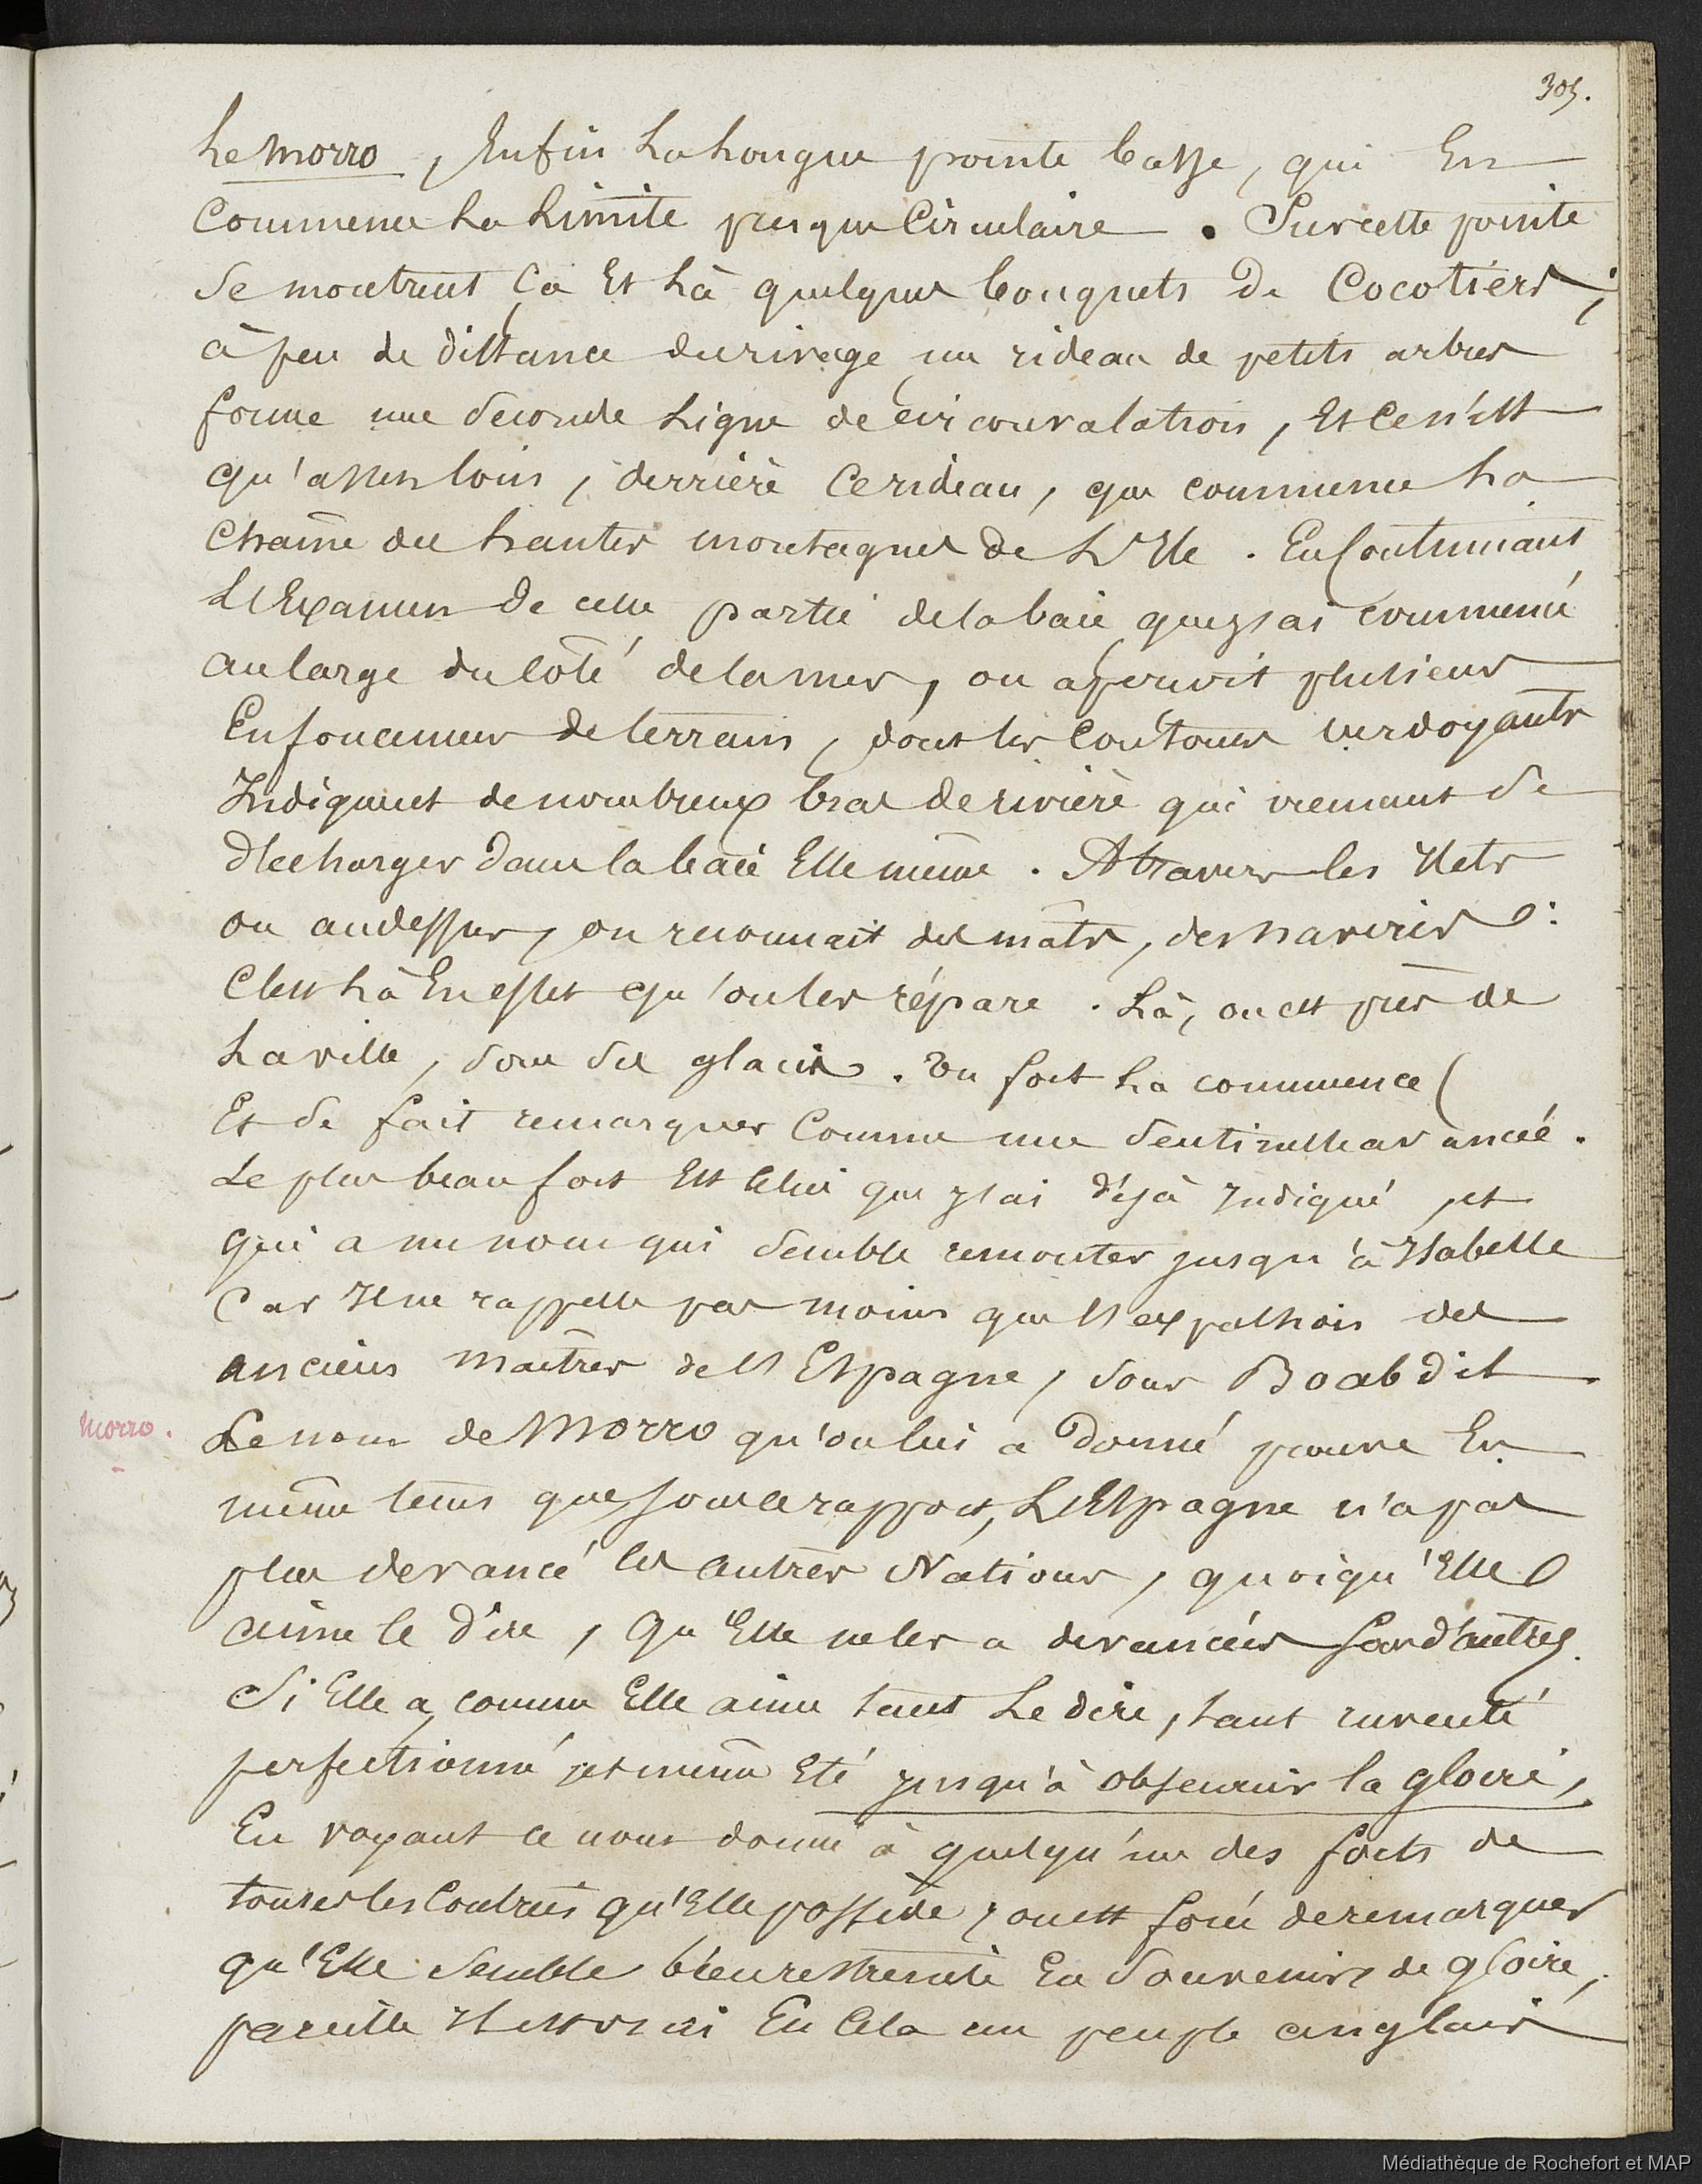 305.
Le Morro, Enfin La Longue pointe basse, qui En
Commence La Limite presque Circulaire. Sur cette pointe
Se montrent Ça Et Là quelques bouquets De Cocotiers;
à peu de distance du rivage un rideau de petits arbres
forme une Seconde Ligne de circonvalation, Et Ce n'est
qu'assez loin, derrière Ce rideau, que commence La
Chaine des hautes montagnes De L'Ile. En Continuant
L'Examen De cette partie de la baie que j'ai commencé
au large du Côté de la mer, on aperçoit plusieurs
Enfoncemens de terrain, dont les Contours verdoyants
Indiquent de nombreux bras de rivière qui viennent Se
décharger dans la baie Elle même. A travers les Ilets
ou au dessus, on reconnait des mats, des navires:
C'est Là En effet qu'on les répare. Là, on est près de
La ville, sous ses glacis. Un fort La commence
Et Se fait remarquer Comme une Sentinelle avancée.
Le plus beau fort Est Celui que j'ai déjà Indiqué, et
qui a un nom qui Semble remonter jusqu'à Isabelle
Car Il ne rappelle pas moins que l'expulsion des
anciens Maitres de l'Espagne, sous Boabdil
Morro.
Le nom de Morro qu'on lui a Donné prouve En
même tems que, sous ce rapport, L'Espagne n'a pas
plus devancé les autres Nations, quoiqu'Elle
aime le dire, Qu'Elle ne les a devancées sous d'autres.
Si Elle a, comme Elle aime tant Le dire, tant inventé
perfectionné, et même Eté jusqu'à obscurcir la gloire,
En voyant ce nom donné à quelqu'un des forts de
toutes les Contrées qu'Elle possède, on est forcé de remarquer
qu'Elle Semble bien restreinte En Souvenirs de gloire,
pareille Il est vrai En Cela au peuple anglais
Médiathèque de Rochefort et MAP